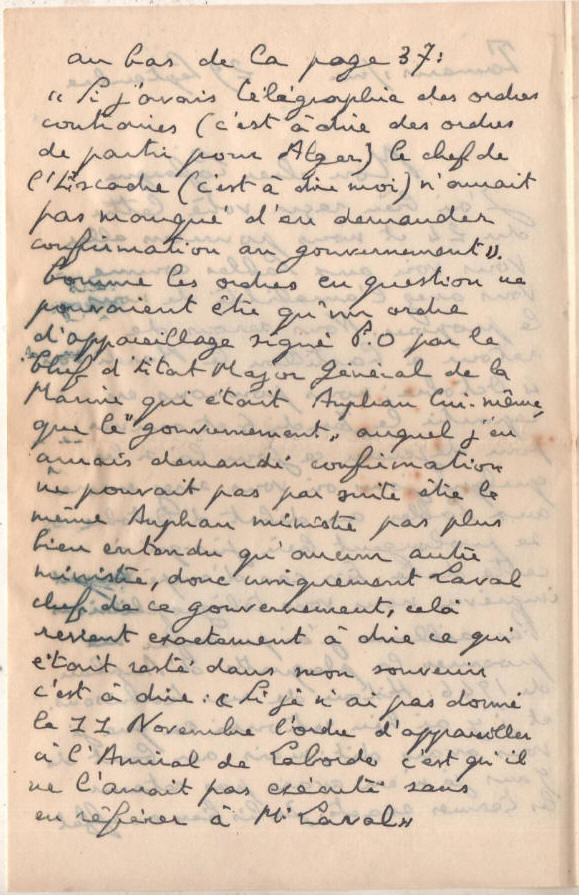 au bas de la page 37:
"Si j'avais télégraphié des ordres
contraires (c'est à dire des ordres
de partir pour Alger) le chef de
l'Escadre (c'est à dire moi) n'aurait
pas manqué d'en demander
confirmation au gouvernement".
Comme les ordres en question ne
pouvaient être qu'un ordre
d'appareillage signé P.O par le
Chef d'Etat Major Général de la
Marine qui était Auphan lui-même,
que le "gouvernement" auquel j'en
aurais demandé confirmation
ne pouvait pas par suite être le
même Auphan ministre pas plus
bien entendu qu'aucun autre
ministre, donc uniquement Laval
chef de ce gouvernement, celà
revient exactement à dire ce qui
était resté dans mon souvenir
c'est à dire: "Si je n'ai pas donné
le 11 Novembre l'ordre d'appareiller
à l'Amiral de Laborde c'est qu'il
ne l'aurait pas exécuté sans
en référer à Mr Laval"